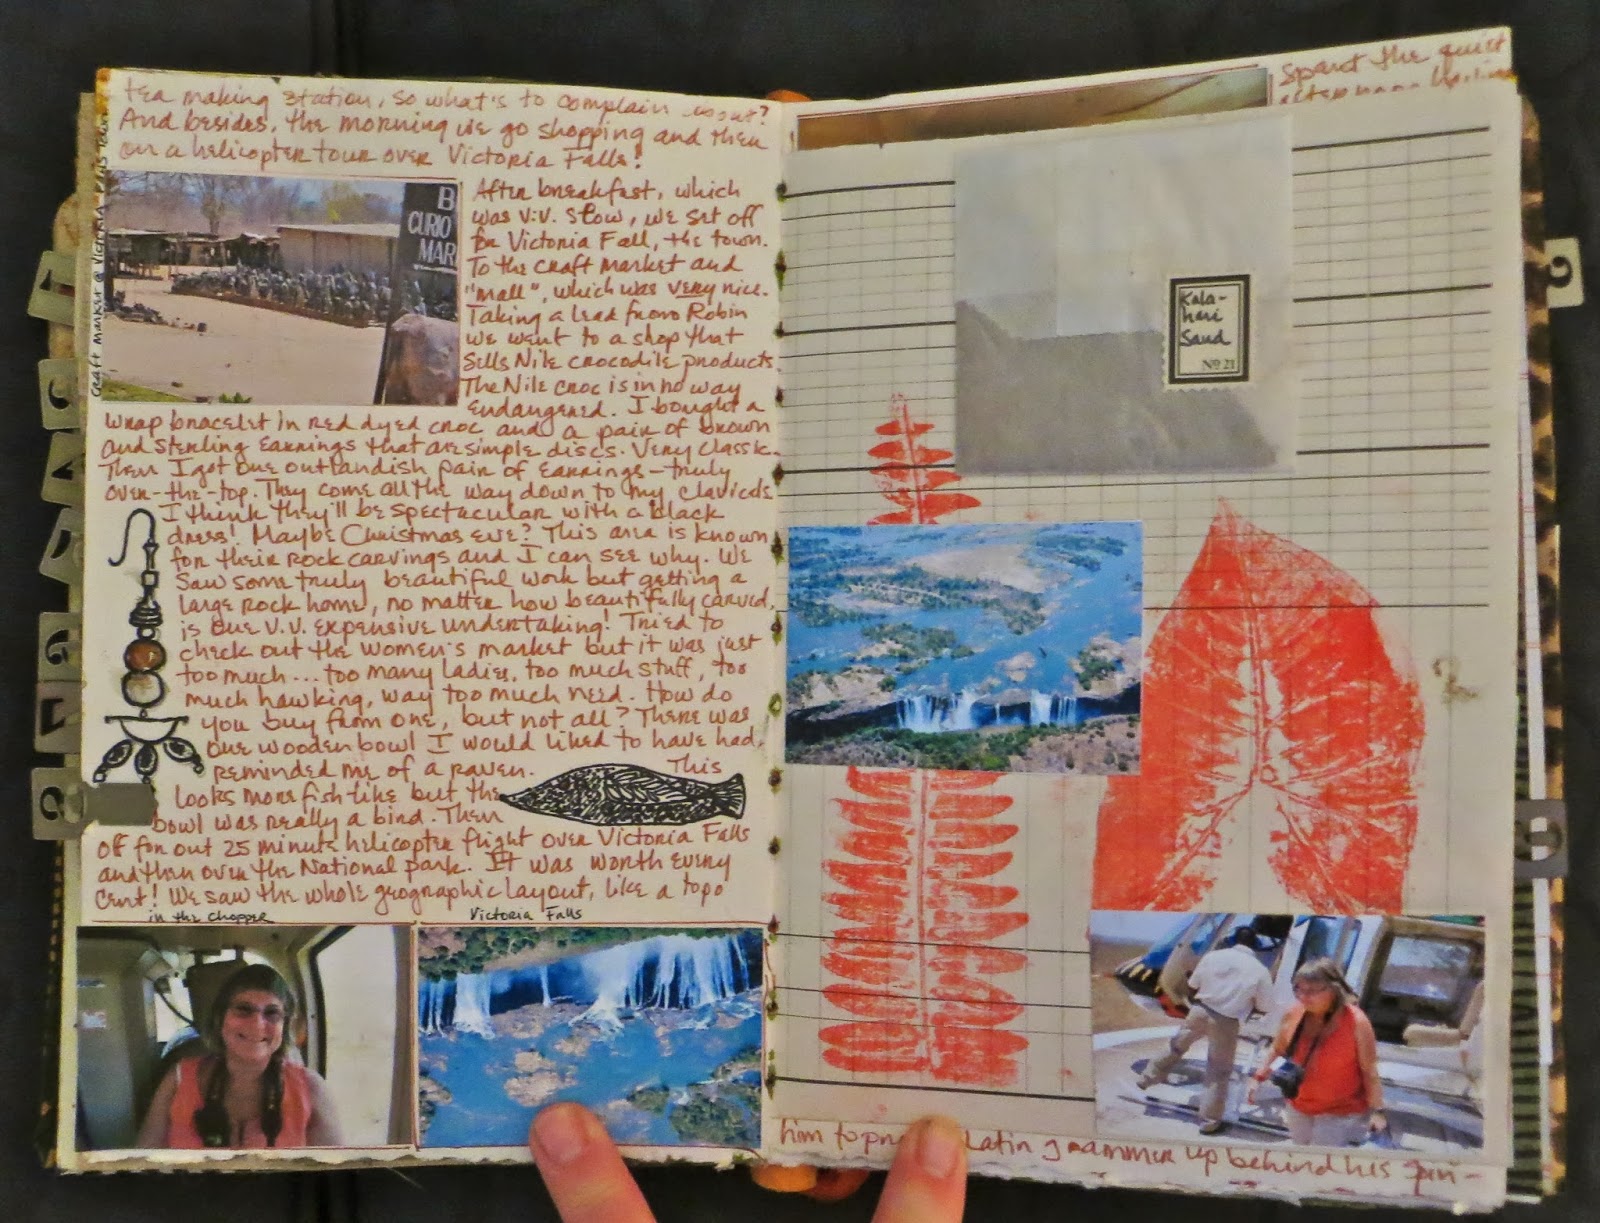 tea making station, so what's to complain about?
And besides, the morning we go shopping and then
on a helicopter tour over Victoria Falls!
After breakfast, which
was v.v. slow, we set off
for Victoria Fall, the town.
To the craft market and
"mall", which was very nice.
Taking a lead from Robin
we went to a shop that
sells Nile crocodile products.
The Nile croc is in no way
endangered. I bought a
wrap bracelet in red dyed croc and a pair of brown
and sterling earrings that are simple discs. Very classic.
Then I got one outlandish pair of earrings - truly
over-the-top. They come all the way down to my clavicels.
I think they'll be spectacular with a black
dress! Maybe Christmas eve? This area is known
for their rock carvings and I can see why. We
saw some truly beautiful work but getting a
large rock home, no matter how beautifully carved,
is one v.v. expensive undertaking! Tried to
check out the women's market but it was just
too much... too many ladies, too much stuff, too
much hawking, way too much need. How do
you buy from one, but not all? There was
one wooden bowl I would liked to have had,
reminded me of a raven. This
looks more fish like but the
bowl was really a bird. Then
off for out 25 minute helicopter flight over Victoria Falls
and then over the National park. It was worth every
cent! We saw the whole geographic layout, like a topo
in the chopper
Victoria Falls
Craft Market @ Victoria Falls Town
B
CURIO
MAR
Spent the quiet
afternoon
Kala-
hari
Sand
No 21
him to Latin grammer up behind his